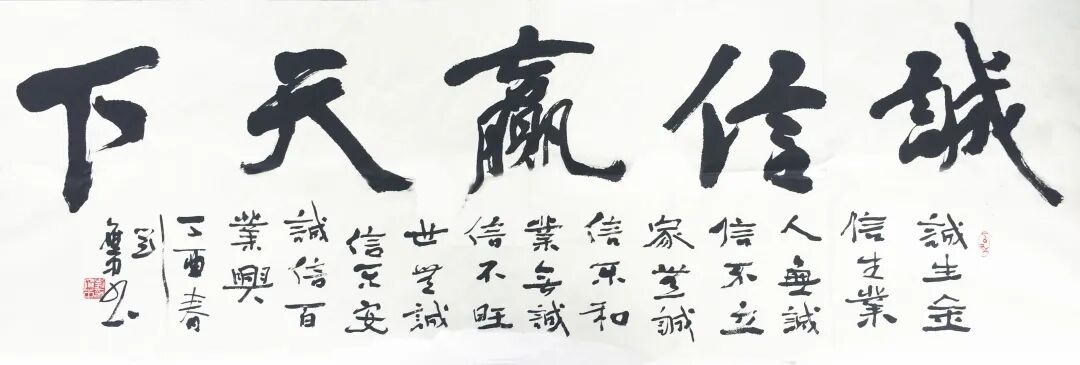 誠信贏天下
誠生金
信生業
人無誠
信不立
家無誠
信不和
業無誠
信不旺
世無誠
信不安
誠信百
業興
丁酉春